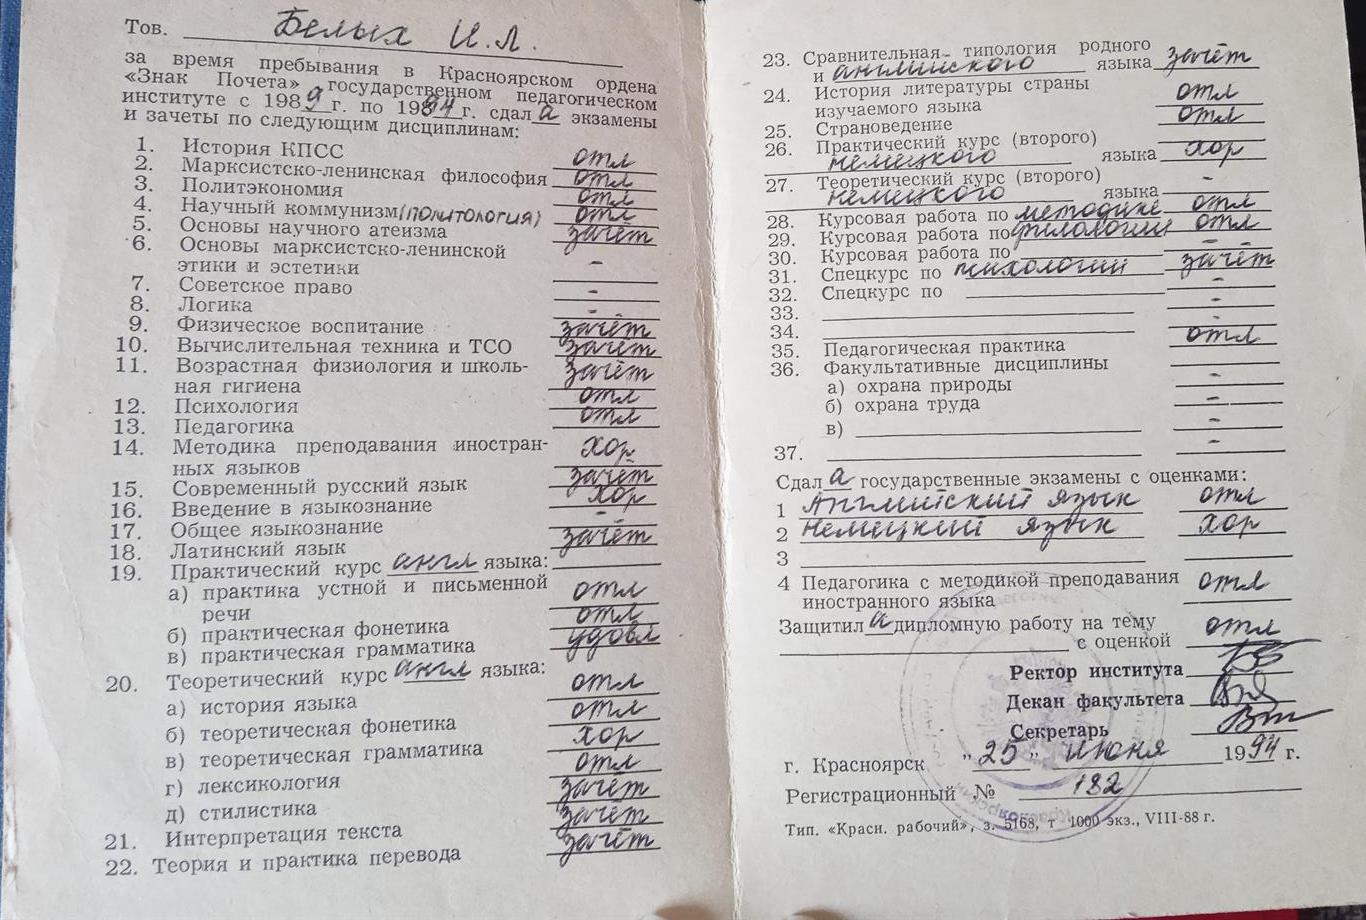 Тов. Белых И.Л.
за время пребывания в Красноярском ордена
«Знак Почета» государственном педагогическом
институте с 1989 г. по 1994 г. сдала экзамены
и зачеты по следующим дисциплинам:
1. История КПСС отл
2. Марксистско-ленинская философия отл
3. Политэкономия отл
4. Научный коммунизм (политология) отл
5. Основы научного атеизма зачёт
6. Основы марксистско-ленинской
этики и эстетики -
7. Советское право -
8. Логика -
9. Физическое воспитание зачёт
10. Вычислительная техника и ТСО зачёт
11. Возрастная физиология и школь-
ная гигиена зачёт
12. Психология отл
13. Педагогика отл
14. Методика преподавания иностран-
ных языков хор
15. Современный русский язык зачёт
16. Введение в языкознание хор
17. Общее языкознание -
18. Латинский язык зачёт
19. Практический курс англ языка:
а) практика устной и письменной
речи отл
б) практическая фонетика отл
в) практическая грамматика удовл
20. Теоретический курс англ языка:
а) история языка отл
б) теоретическая фонетика отл
в) теоретическая грамматика хор
г) лексикология отл
д) стилистика зачёт
21. Интерпретация текста зачёт
22. Теория и практика перевода зачёт
23. Сравнительная типология родного
и английского языка зачёт
24. История литературы страны
изучаемого языка отл
25. Страноведение отл
26. Практический курс (второго)
немецкого языка хор
27. Теоретический курс (второго)
немецкого языка -
28. Курсовая работа по методике отл
29. Курсовая работа по филологии отл
30. Курсовая работа по -
31. Спецкурс по психологии зачёт
32. Спецкурс по -
33. -
34. -
35. Педагогическая практика отл
36. Факультативные дисциплины
а) охрана природы -
б) охрана труда -
в) -
37. -
Сдала государственные экзамены с оценками:
1 Английский язык отл
2 Немецкий язык хор
3
4 Педагогика с методикой преподавания
иностранного языка отл
Защитила дипломную работу на тему
с оценкой отл
Ректор института
Декан факультета
Секретарь
г. Красноярск "25" июня 1994 г.
Регистрационный № 182
Тип. «Красн. рабочий», з. 5168, т 1000 экз., VIII-88 г.